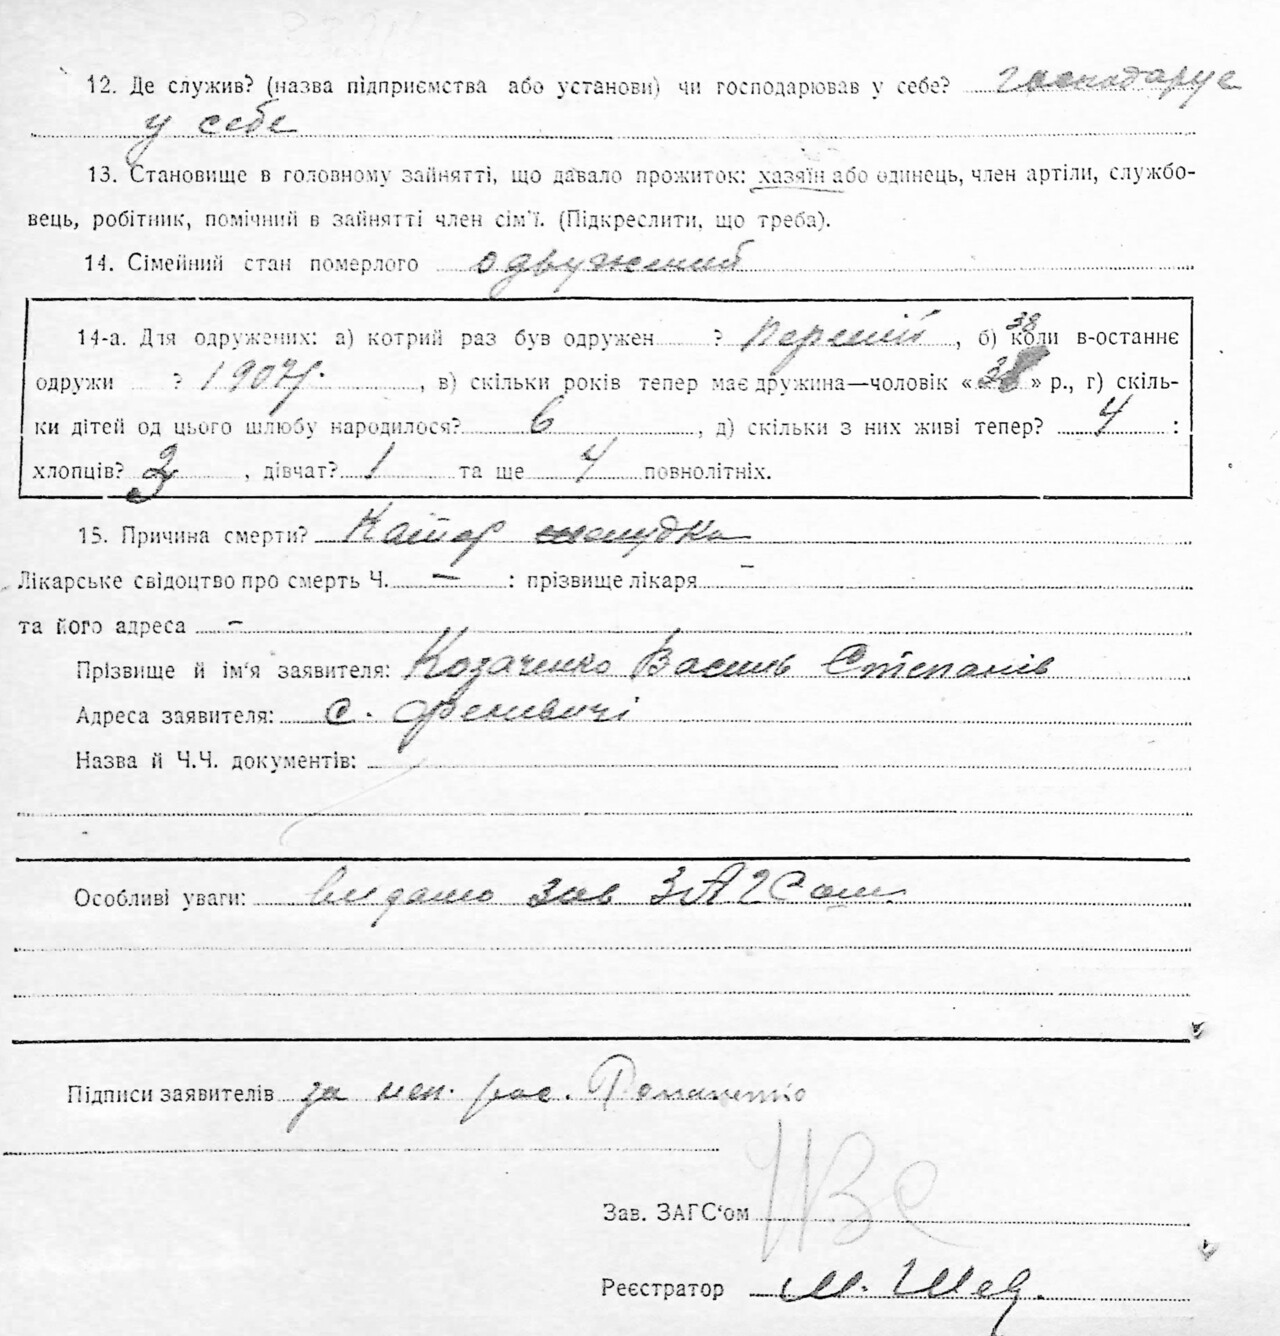 12. Де служив? (назва підприємства або установи) чи господарював у себе? господарує
у себе
13. Становище в головному зайнятті, що давало прожиток: хазяїн або одинець, член артіли, службо-
вець, робітник, помічний в зайнятті член сім'ї. (Підкреслити, що треба).
14. Сімейний стан померлого одружений
14-а. Для одружених: а) котрий раз був одружен ? перший, б) коли в-останнє
38
одружи ? 1907 г., в) скільки років тепер має дружина—чоловік «38» р., г) скіль-
ки дітей од цього шлюбу народилося? 6, д) скільки з них живі тепер? 4 :
хлопців? 3, дівчат? 1 та ще 4 повнолітніх.
15. Причина смерти? Катар желудка
Лікарське свідоцтво про смерть Ч. — : прізвище лікаря –
та його адреса –
Прізвище й ім'я заявителя: Козаченко Василь Степанів
Адреса заявителя: с.
Назва й Ч.Ч. документів:
Особливі уваги: видано зав ЗАГСом
Підписи заявителів за неп. рос. Романенко
Зав. ЗАГС'ом
Реєстратор М. Шев.